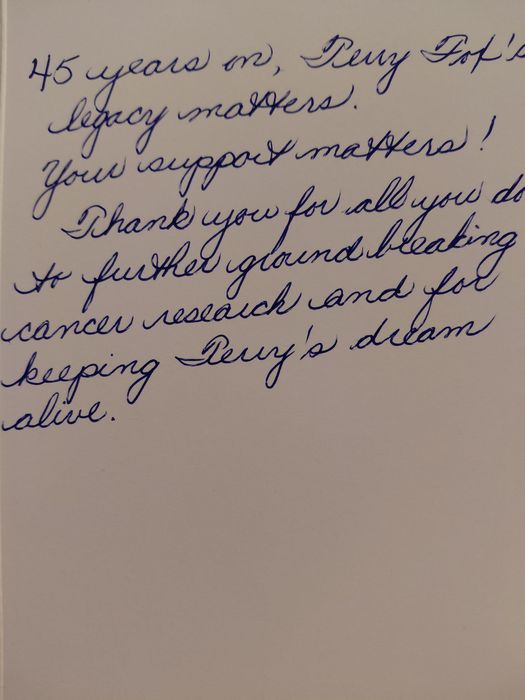 45 years on, Terry Fox's
legacy matters.
Your support matters!
Thank you for all you do
to further groundbreaking
cancer research and for
keeping Terry's dream
alive.